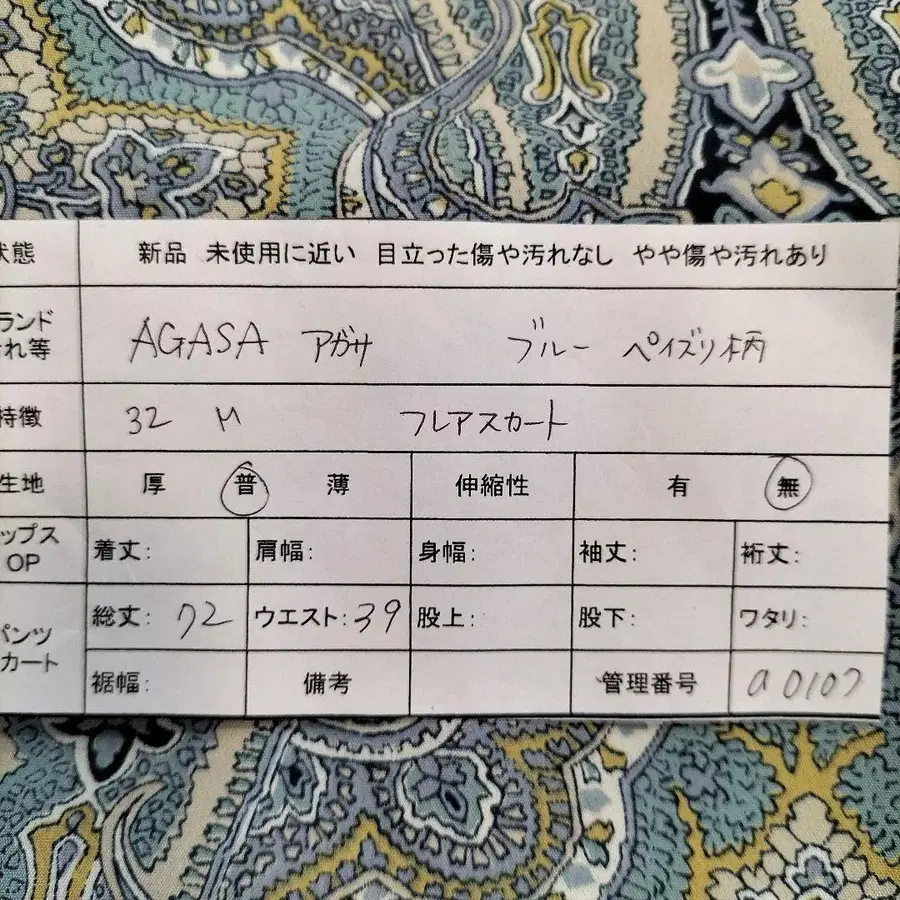 状態 新品 未使用に近い 目立った傷や汚れなし やや傷や汚れあり
ランド
れ等 AGASA アガサ ブルー ペイズリ柄
特徴 32 M フレアスカート
生地 厚 普 薄 伸縮性 有 無
ップス
OP 着丈: 肩幅: 身幅: 袖丈: 裄丈:
パンツ
カート
総丈: 72 ウエスト: 39 股上: 股下: ワタリ:
裾幅: 備考 管理番号 a0107